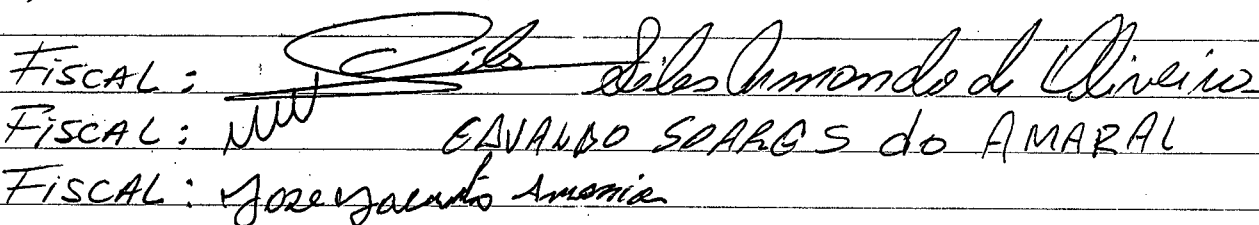 FISCAL: Siles Armando de Oliveira
FISCAL: EDVALDO SOARES do AMARAL
FISCAL: Jose Jacinto